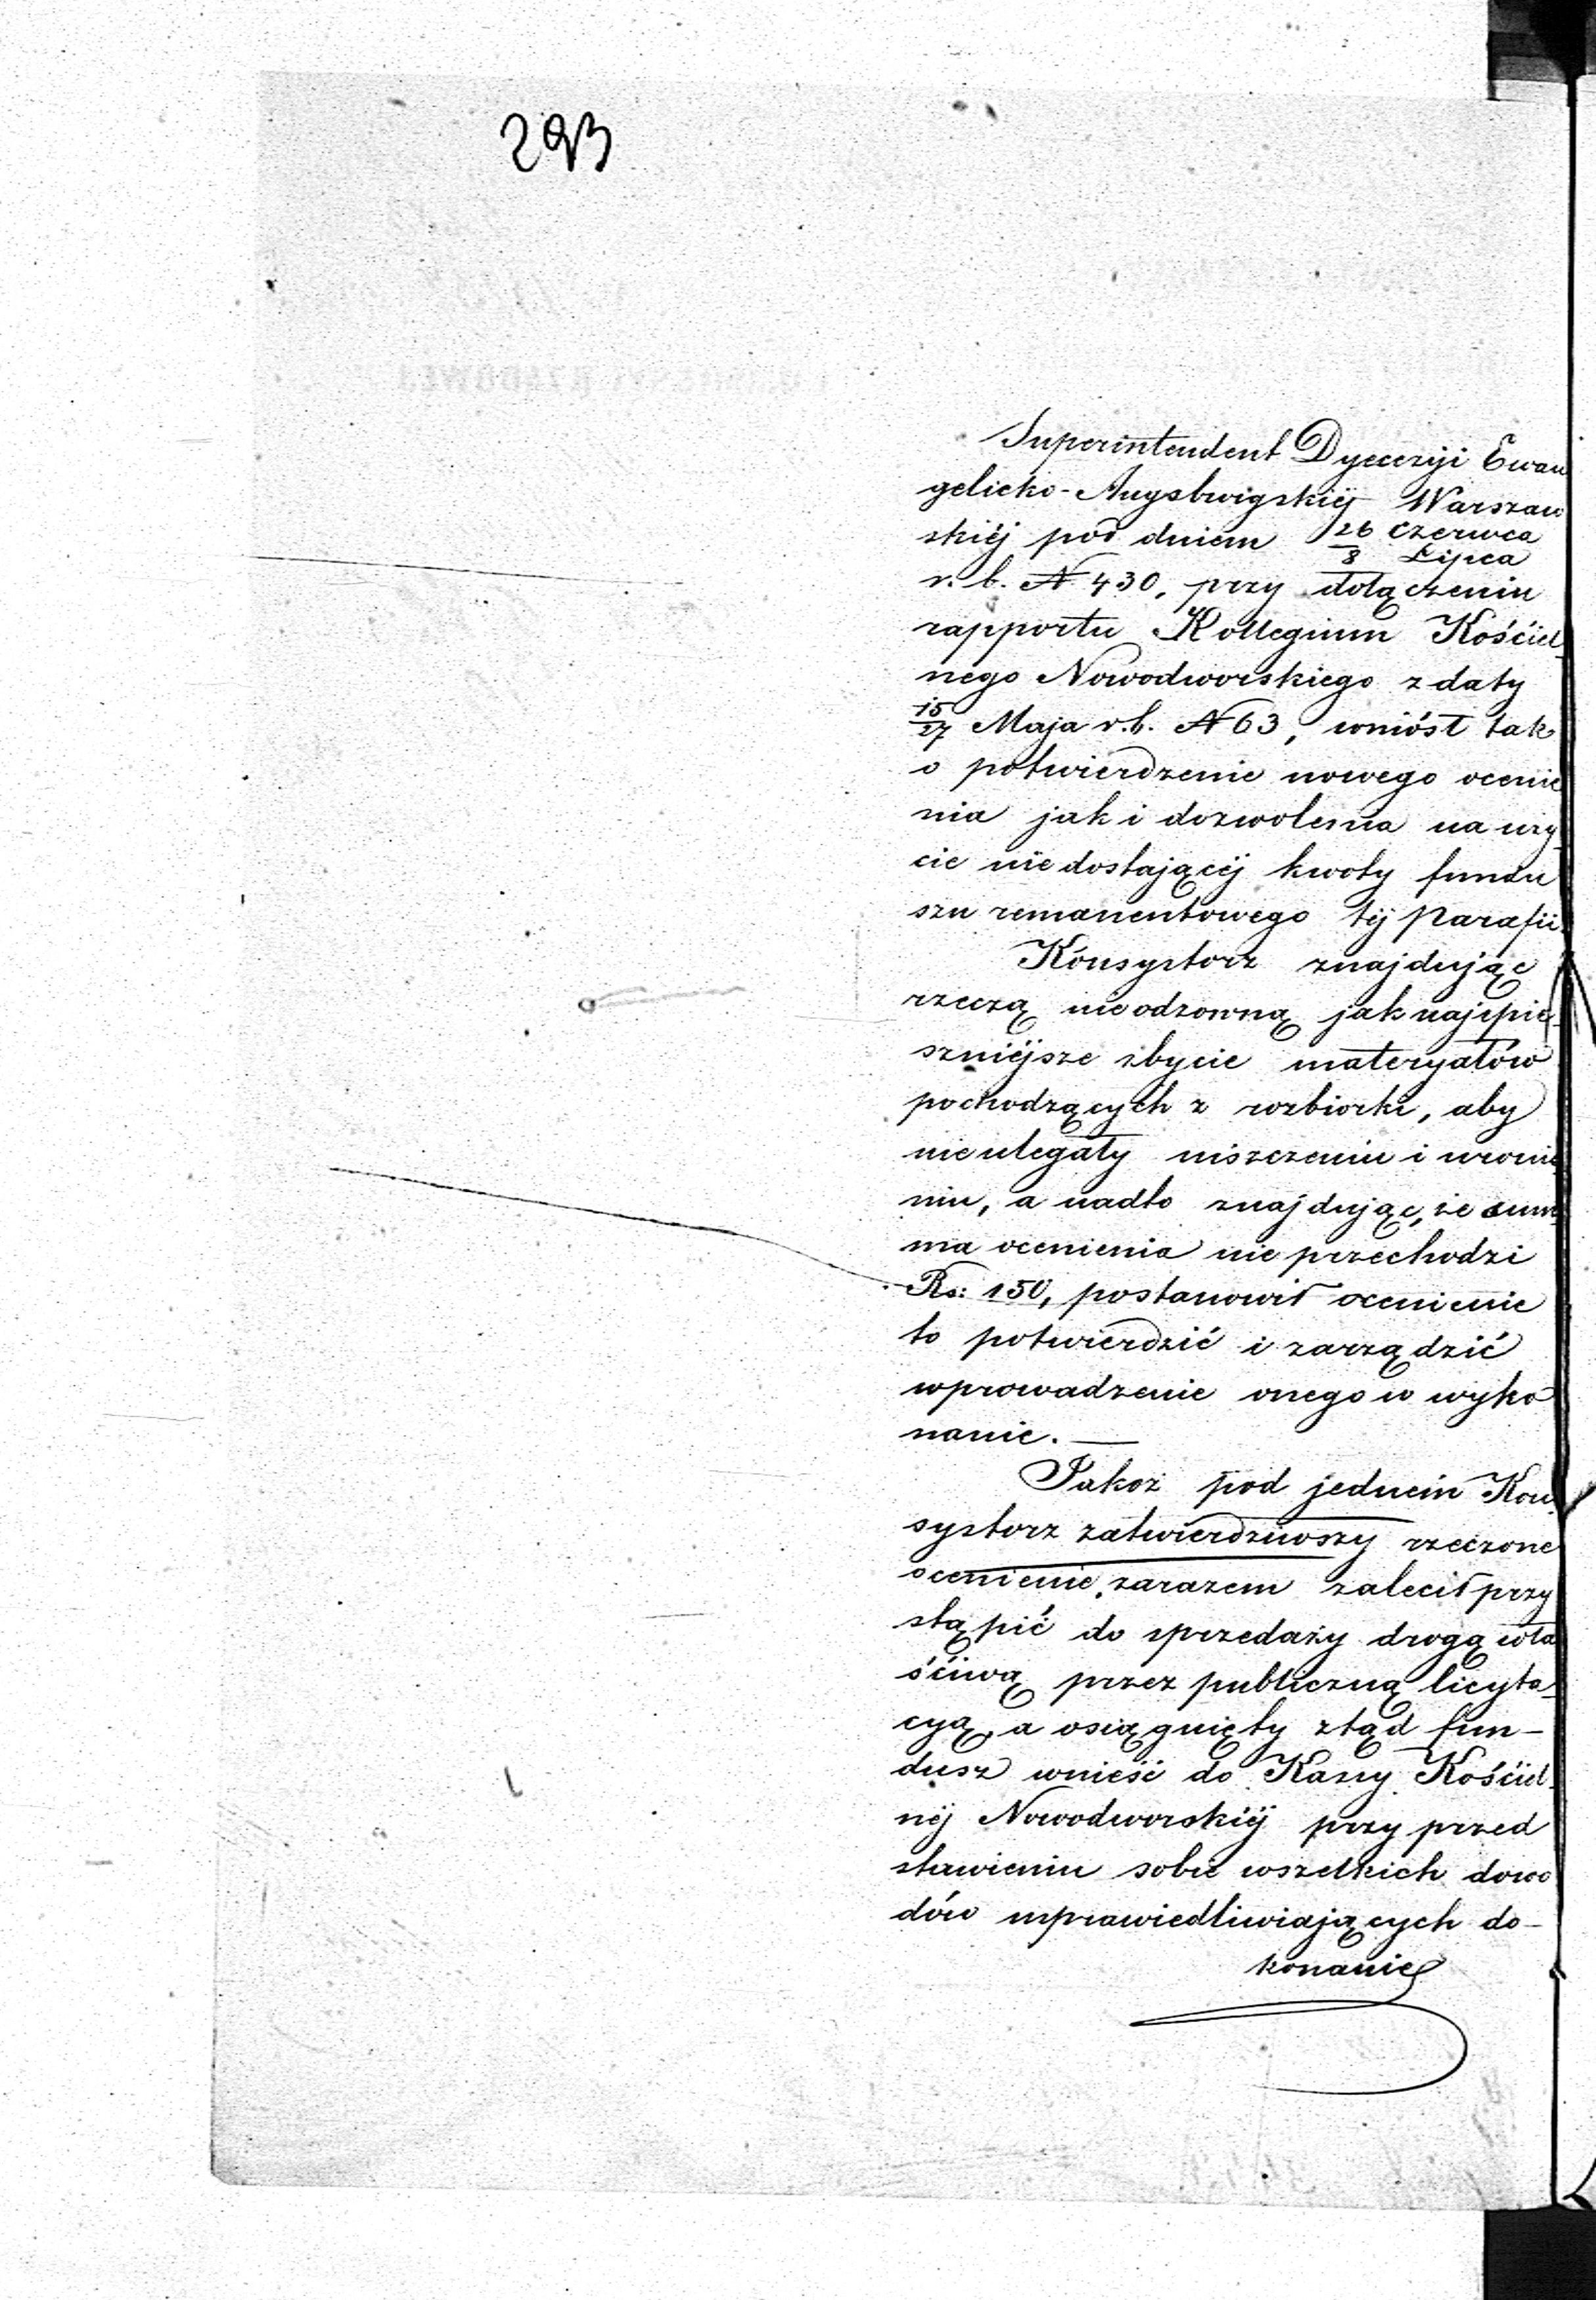 293
Superintendent Dyecezyi Ewan
gelicko-Augsburgskiéj Warszaw
skiéj pod dniem 26 Czerwca / 8 Lipca
r. b. N 430, przy dołączeniu
rapportu Kollegium Kościel
nego Nowodworskiego z daty
15/27 Maja r.b. N 63, wniósł tak
o potwierdzenie nowego ocenie
nia jak i dozwolenia na uży
cie niedostającéj kwoty fundu
szu remanentowego téj Parafii.
Konsystorz znajdując
rzeczą nieodzowną jak najspie
szniéjsze zbycie materyałów
pochodzących z rozbiorki, aby
nie ulegały niszczeniu i uronie
niu, a nadto znajdując, że sum
ma ocenienia nie przechodzi
Rs: 150, postanowił ocenienie
to potwierdzić i zarządzić
wprowadzenie onego w wyko
nanie. —
Jakoż pod jednem Kon
systorz zatwierdziwszy rzeczone
ocenienie, zarazem zalecił przy
stąpić do sprzedaży drogą wła
ściwą przez publiczną licyta
cyą, a osiągnięty ztąd fun-
dusz wnieść do Kassy Kościel
néj Nowodworskiéj przy przed
stawieniu sobie wszelkich dowo
dów usprawiedliwiających do-
konanie